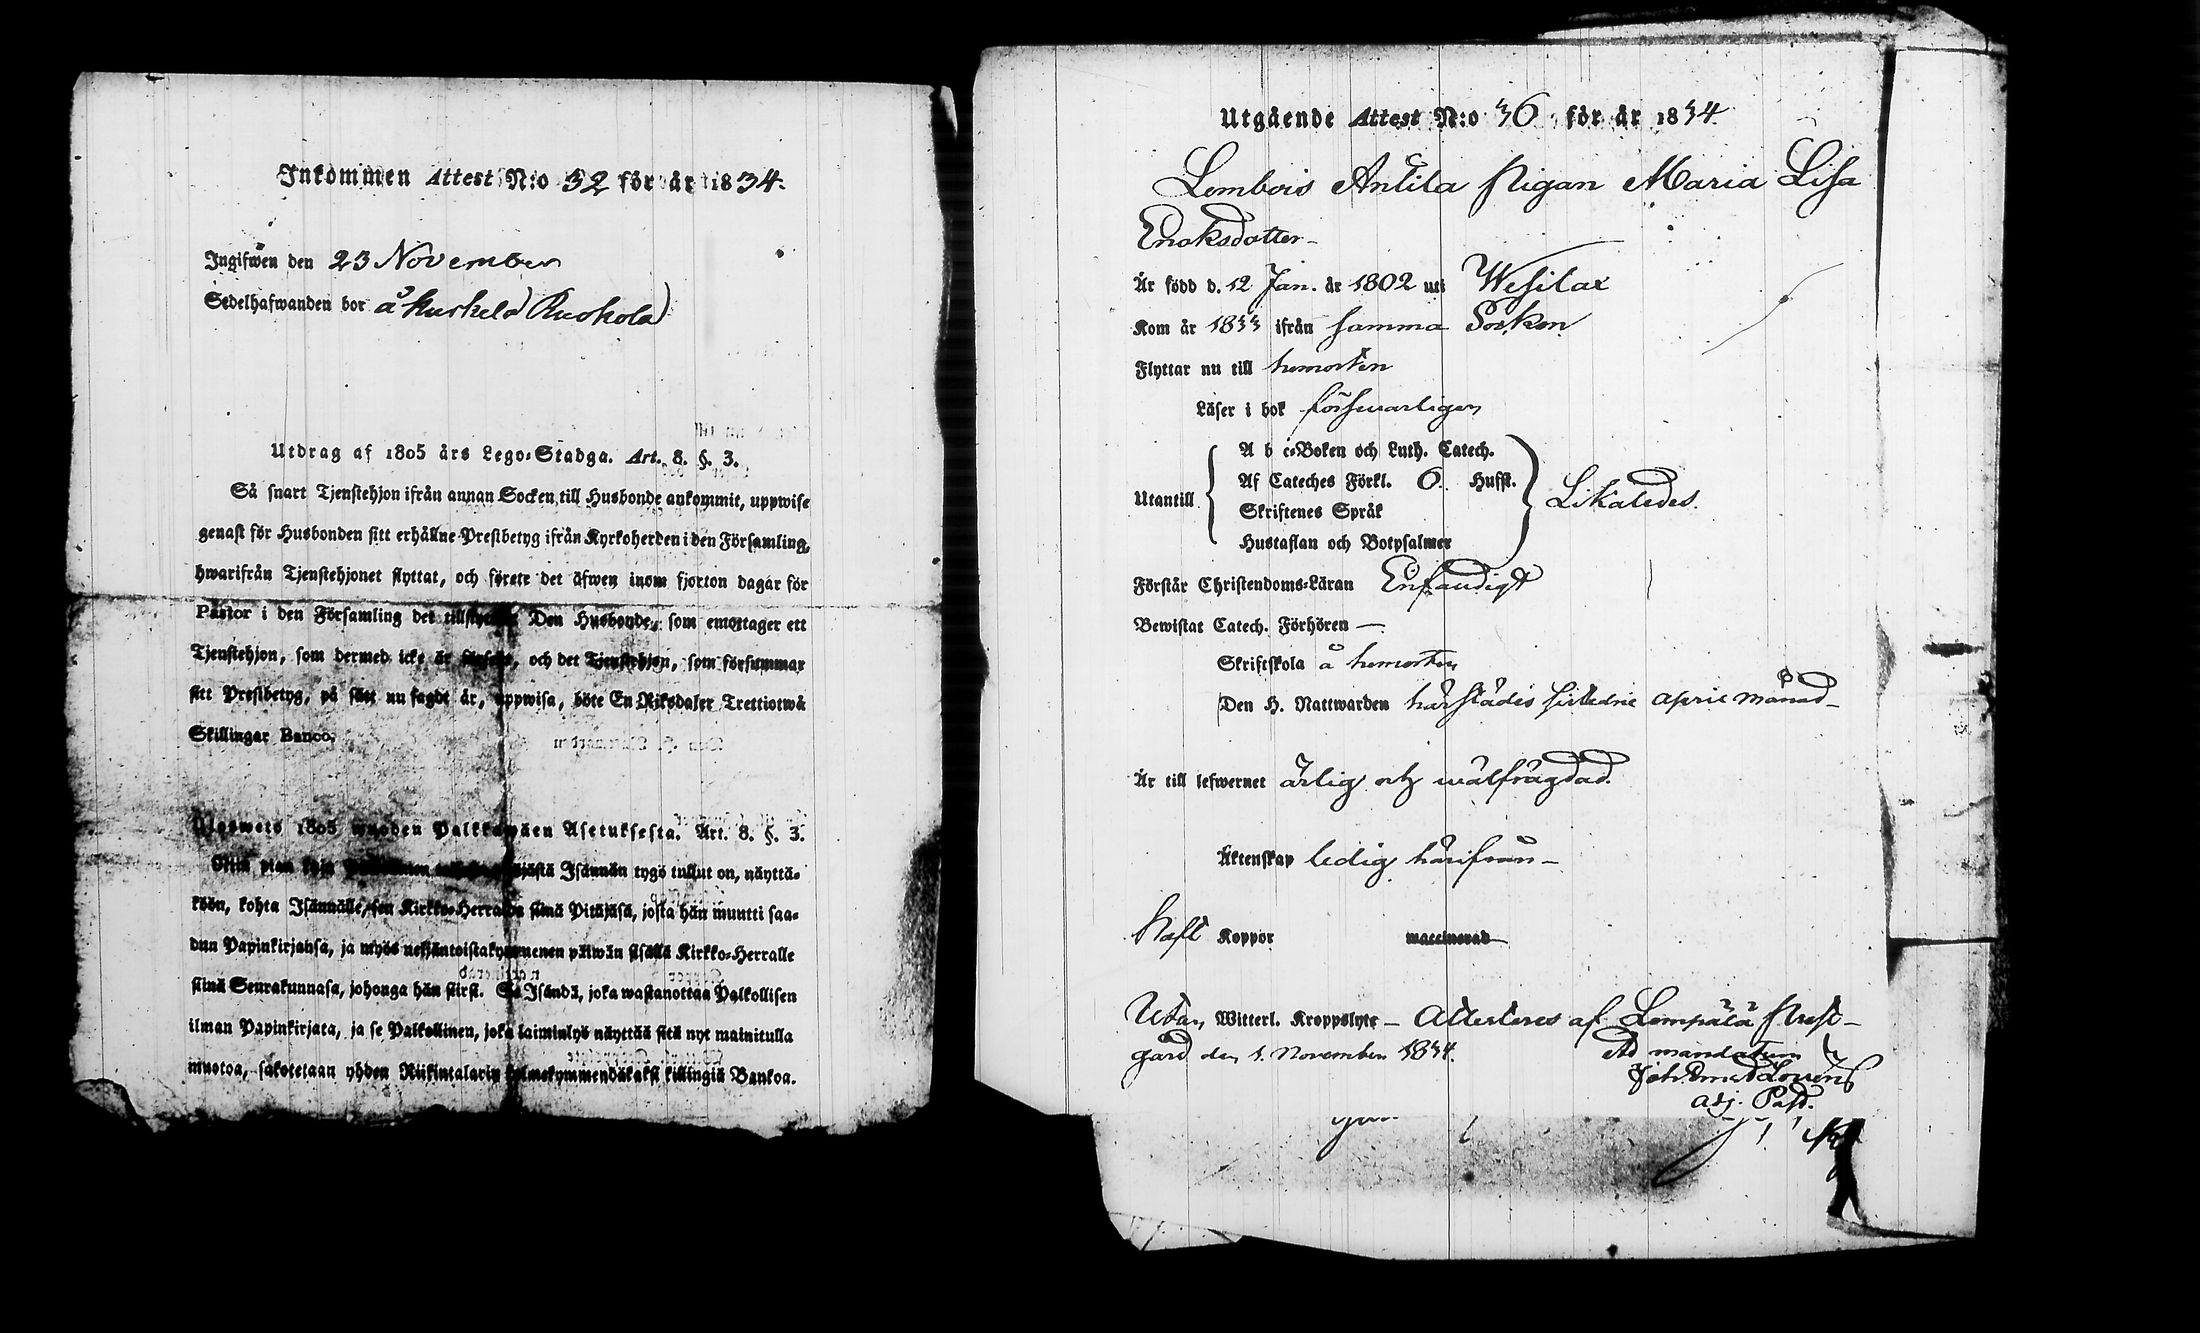 Inkommen Attest N:o 32 för år 1834.
Ingifwen den 23 November
Sedelhafwanden bor å Kuskela (Ruokola)
Utdrag af 1805 års Lego-Stadga. Art. 8. §. 3.
Så snart Tjenstehjon ifrån annan Socken till Husbonde ankommit, uppwise
genast för Husbonden sitt erhållne Prestbetyg ifrån Kyrkoherden i den Församling,
hwarifrån Tjenstehjonet flyttat, och förete det äfwen inom fjorton dagar för
Pastor i den Församling det Den Husbonde, som emottager ett
Tjenstehjon, som dermed icke är och det Tjenstehjon, som försummar
sitt Prestbetyg, på sätt nu sagdt är, uppwisa, böte En Riksdaler Trettiotwå
Skillingar Banco.
Ulosweto 1805 wuoden Palkkawäen Asetuksesta. Art. 8. §. 3.
Niin pian kuin Isännän tygö tullut on, näyttä-
köön, kohta Isännälle, sen Kirkko-Herralda siinä Pitäjäsä, josta hän muutti saa-
dun Papinkirjansa, ja myös neljäntoistakymmenen päiwän sisällä Kirkko-Herralle
siinä Seurakunnasa, johonga hän siirst. Se Isändä, joka wastanottaa Palkollisen
ilman Papinkirjata, ja se Palkollinen, joka laiminlyö näyttää sitä nyt mainitulla
muotoa, sakotetaan yhden Riikintalarin kolmekymmendäkaksi killingiä Bankoa.
Utgående Attest N:o 36 för år 1834.
Lembois Anttila Pigan Maria Lisa
Enoksdotter
Är född d. 12 Jan. år 1802 uti Wesilax
Kom år 1833 ifrån samma Socken
Flyttar nu till hemorten
Läser i bok försvarligen
Utantill
A b c-Boken och Luth. Catech.
Af Cateches Förkl. O. Hufst.
Skriftenes Språk
Hustaflan och Botpsalmer
Likaledes.
Förstår Christendoms-Läran Enfaldigt
Bewistat Catech. Förhören —
Skriftskola å hemorten
Den H. Nattwarden härstädes sistledne april månad
Är till lefwernet ärlig och wälfrägdad.
Äktenskap ledig härifrån
Haft Koppor waccinerad
Utan Witterl. Kroppslyte — Attesteres af Lempälä Prest-
gård den 1. November 1834. Ad mandatum
adj. Past.